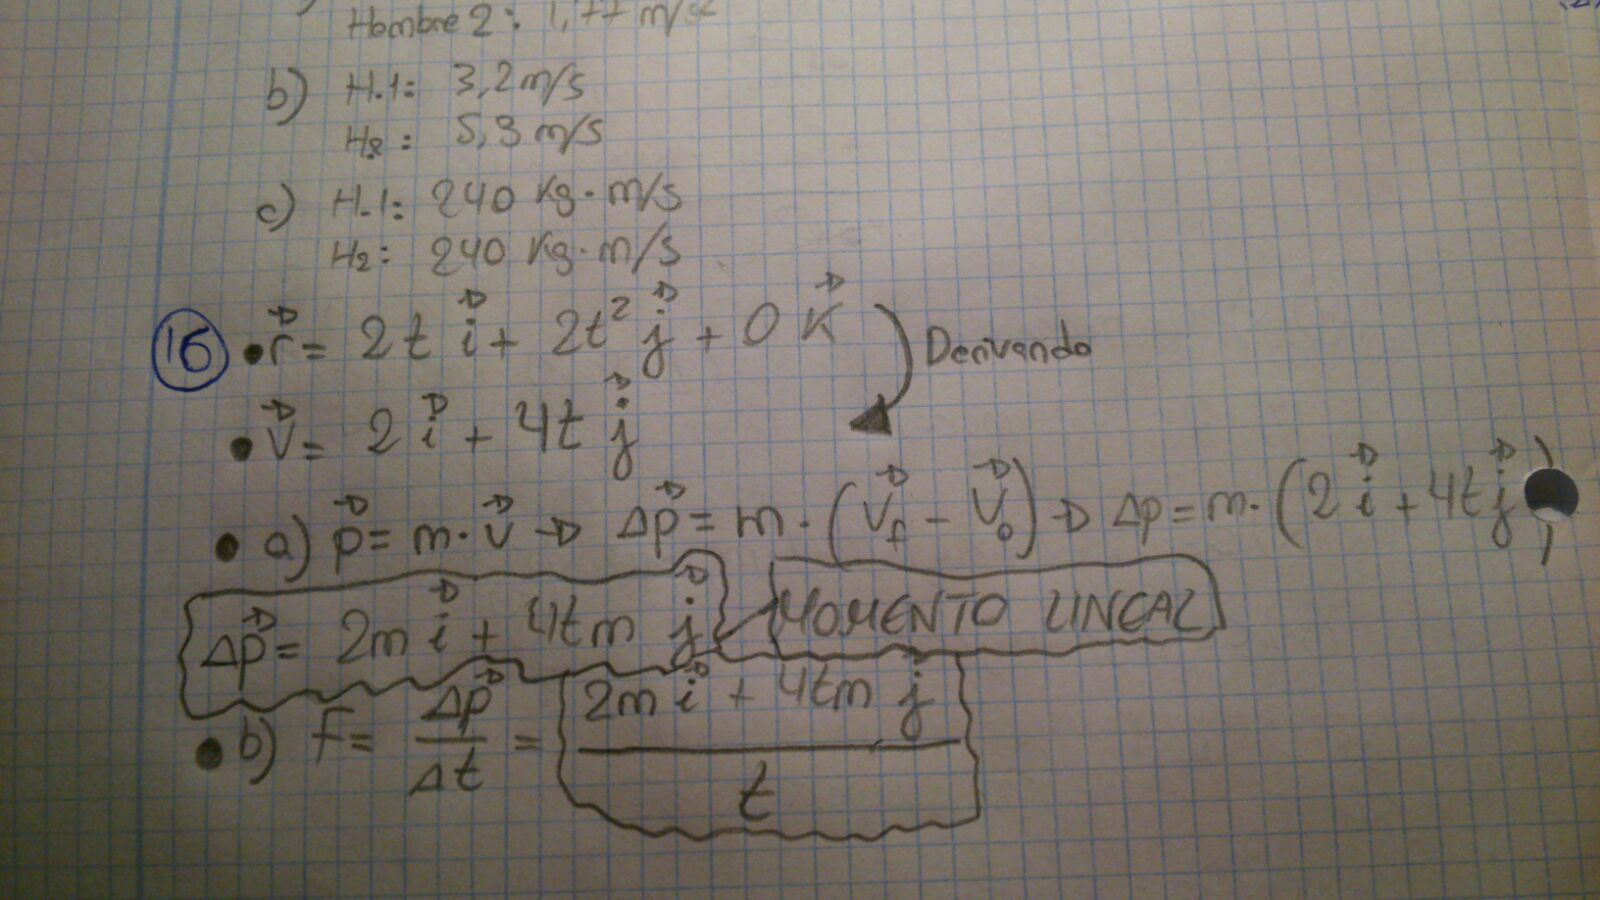 Hombre 2: 1,77 m/s²
b) H.1: 3,2 m/s
H2: 5,3 m/s
c) H.1: 240 Kg·m/s
H2: 240 Kg·m/s
16 • r⃗ = 2t i⃗ + 2t² j⃗ + 0 K⃗ Derivando
• v⃗ = 2 i⃗ + 4t j⃗
• a) p⃗ = m·v⃗ → Δp⃗ = m·(V⃗f - V⃗0) → Δp = m·(2 i⃗ + 4t j⃗)
Δp⃗ = 2m i⃗ + 4tm j⃗ MOMENTO LINEAL
• b) F = Δp⃗/Δt = (2m i⃗ + 4tm j⃗)/t